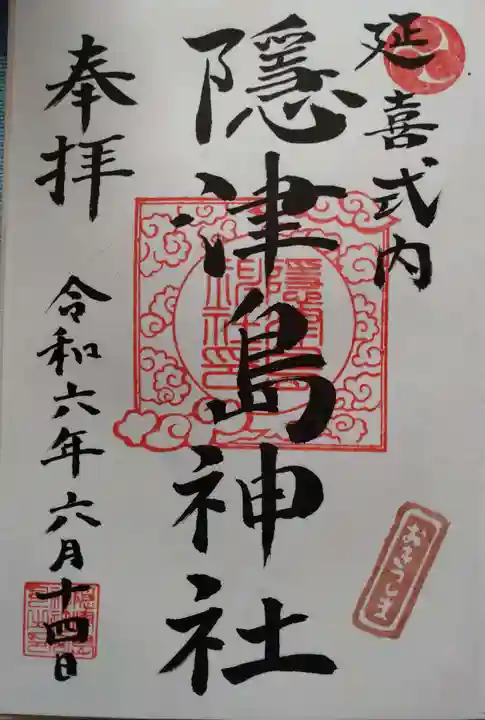 延喜式内
隱津島神社
奉拝
令和六年六月十四日
おきつしま